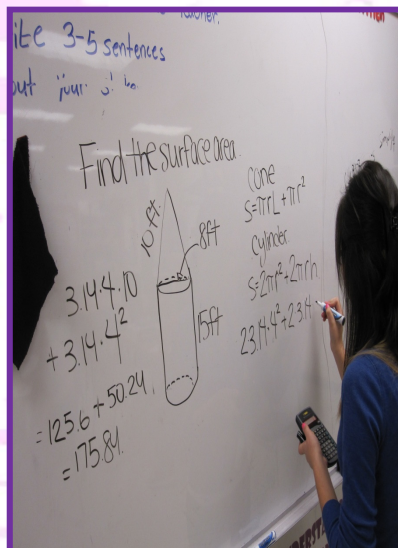 ite 3-5 sentences
out your
Find the surface area.
10ft.
8ft
15ft
3.14·4·10
+ 3.14·4²
= 125.6 + 50.24.
= 175.84.
cone
S=πrL+πr²
cylinder.
S=2πr²+2πrh
2·3.14·4²+2·3.14